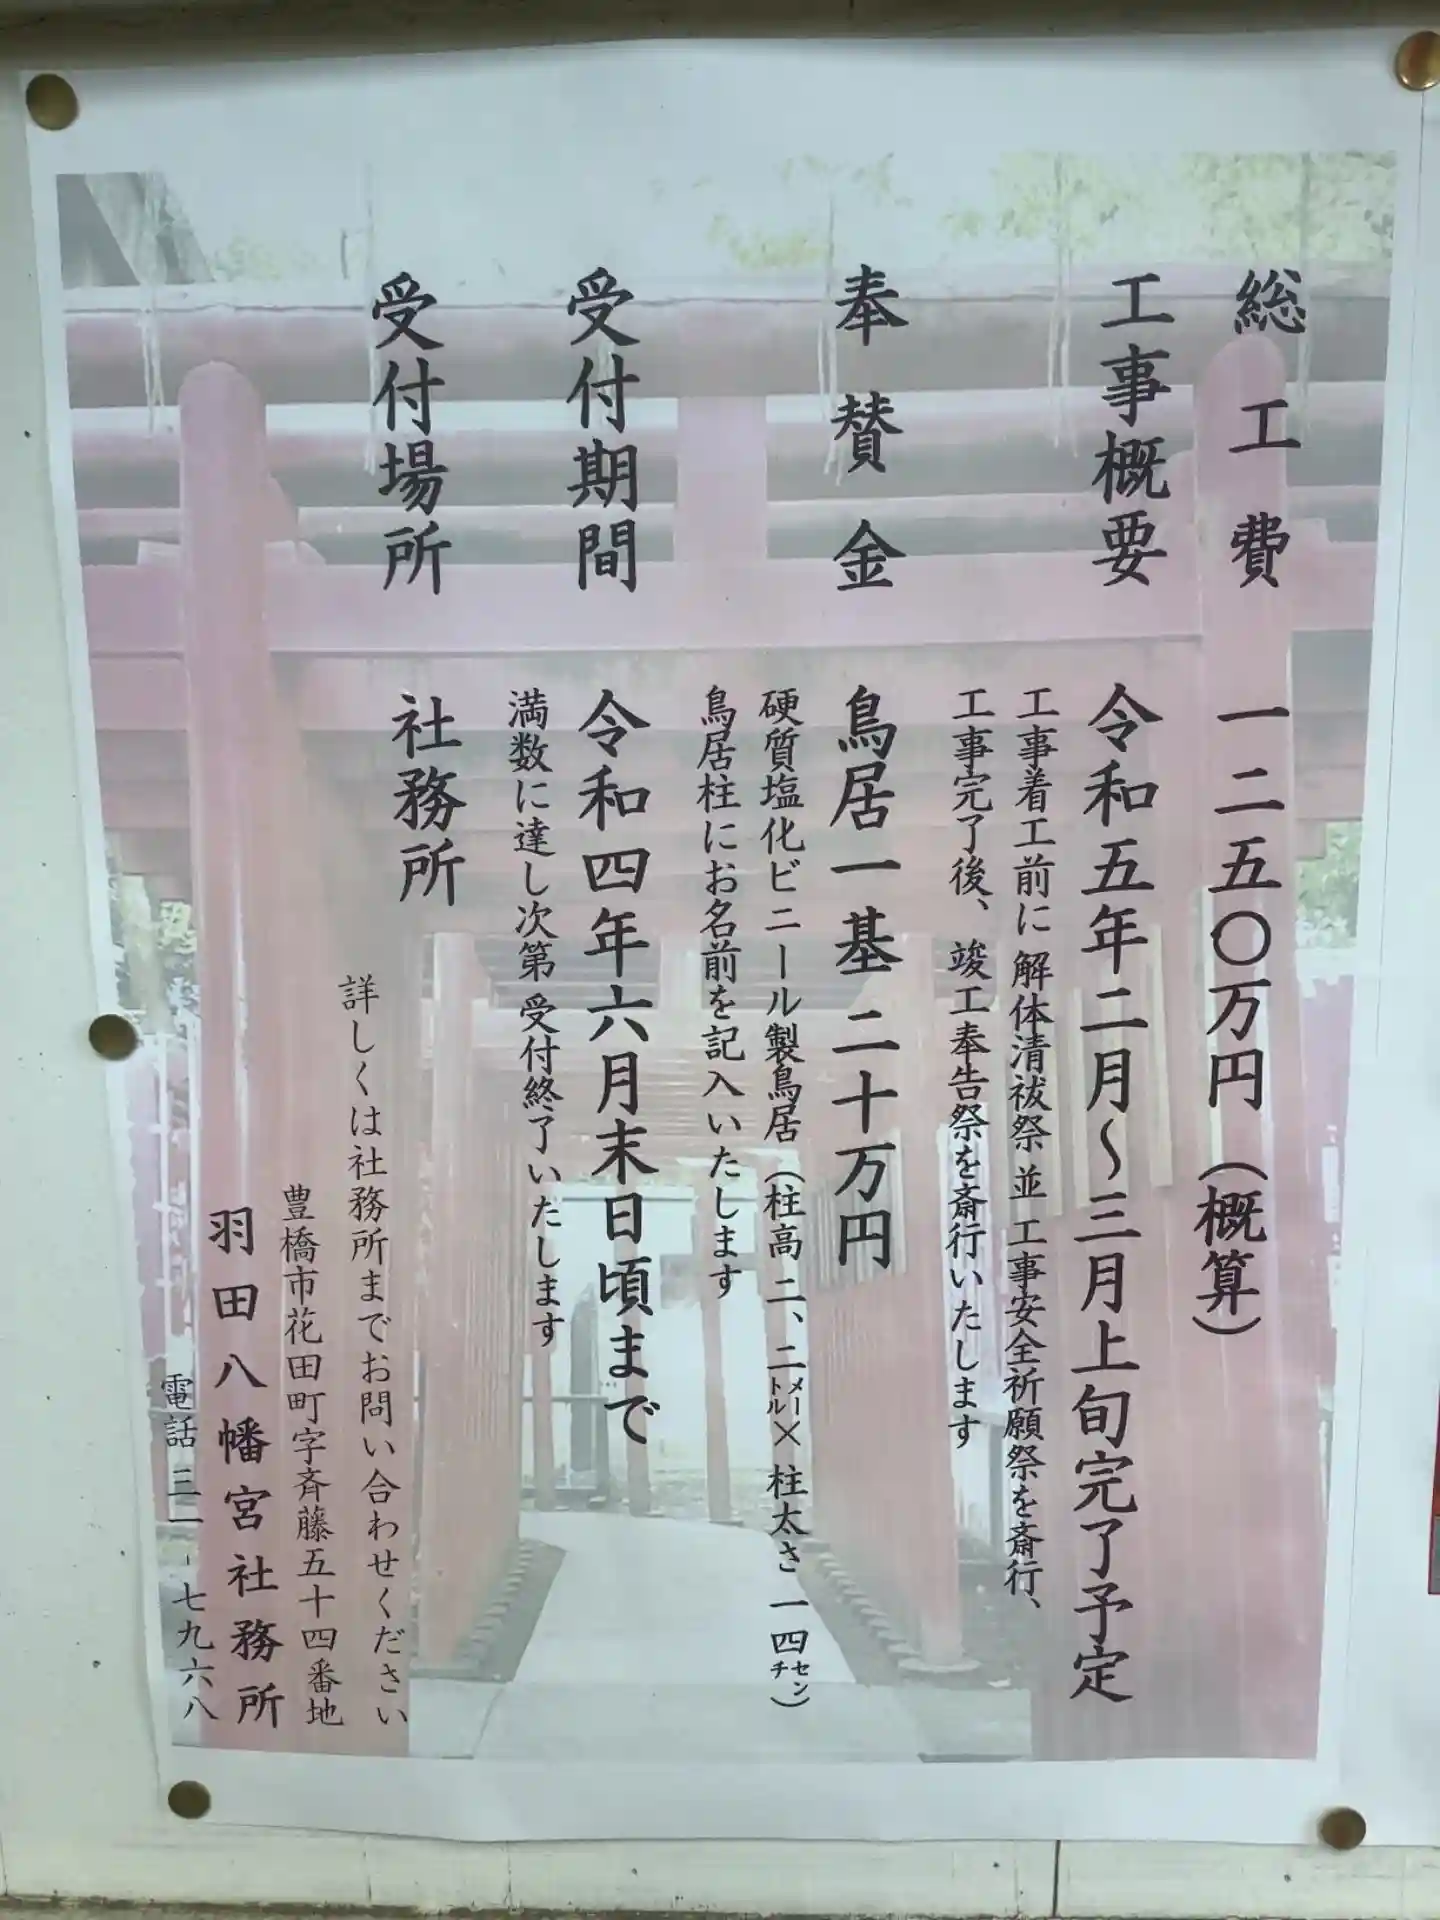 総工費 一二五〇万円(概算)
工事概要 令和五年二月～三月上旬完了予定
工事着工前に 解体清祓祭 並 工事安全祈願祭を斎行、
工事完了後、竣工奉告祭を斎行いたします
奉賛金 鳥居一基 二十万円
硬質塩化ビニール製鳥居 (柱高 二、二メートル× 柱太さ 一四センチ)
鳥居柱にお名前を記入いたします
受付期間 令和四年六月末日頃まで
満数に達し次第 受付終了いたします
受付場所 社務所
詳しくは社務所までお問い合わせください
豊橋市花田町字斉藤五十四番地
羽田八幡宮社務所
電話 三一-七九六八